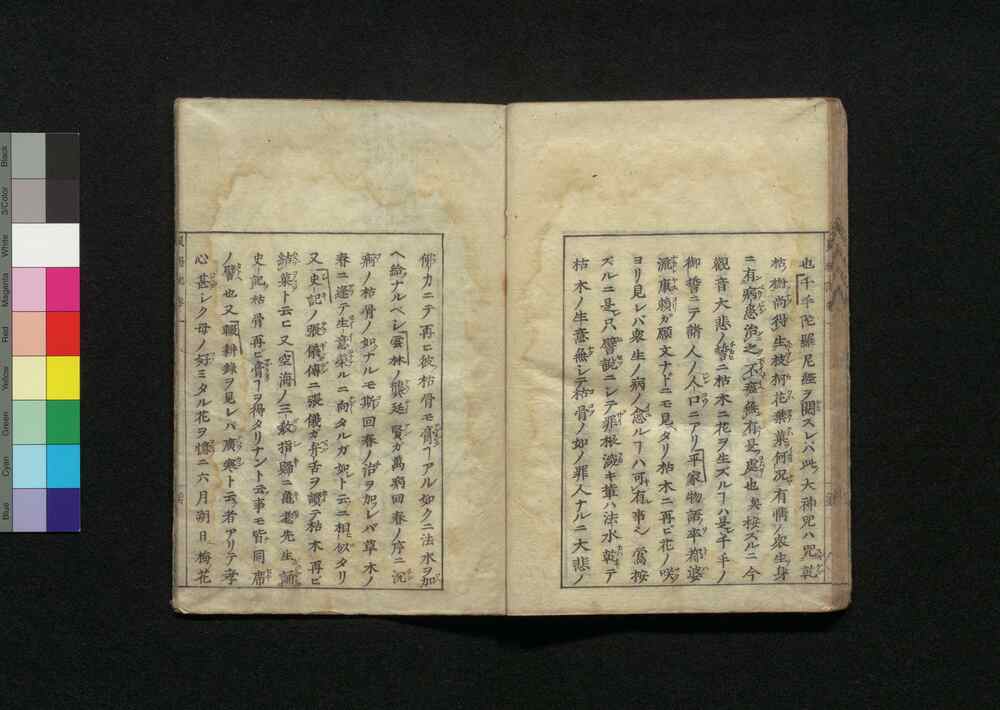 也千手陀羅尼經ヲ閲スレバ此大神咒ハ咒乾
枯樹尚得生枝柯花葉葉何況有情ノ衆生身
ニ有病患治之不差無有是處也矣按ズルニ今
觀音大悲ノ誓ニ枯木ニ花ヲ生ズルヿハ是千手ノ
御誓ニテ諸人ノ人口ニアリ平家物語卒都婆
流康頼ガ願文ナドニモ見タリ枯木ニ再ビ花ノ咲
ヨリ見レバ衆生ノ病ノ愈ルヿハ可有事ゾ當按
ズルニ是只譬説ニシテ罪根深キ輩ハ法水乾テ
枯木ノ生意無シテ枯骨ノ如ノ罪人ナルニ大悲ノ
佛力ニテ再ヒ彼枯骨モ膏ヿアル如クニ法水ヲ加
ヘ給ナルベシ雲林ノ龔廷賢ガ萬病回春ノ序ニ沉
痾ノ枯骨ノ如ナルモ斯回春ノ治ヲ加レバ草木ノ
春ニ逢テ生意榮ルニ両タルガ如ト云ニ相似タリ
又史記ノ張儀傳ニ張儀ガ舌ヲ讃テ枯木再ヒ
結葉ト云ヒ又空海ノ三教指歸ニ亀老先生誦
史記枯骨再ビ膏ヿヲ得タリナント云事モ皆同席
ノ譬也又輟耕録ヲ見レバ廣寒ト云者アリテ孝
心甚シク母ノ好ミタル花ヲ憶ニ六月朔日梅花
Black
3/Color
White
Magenta
Red
Yellow
Green
Cyan
Blue